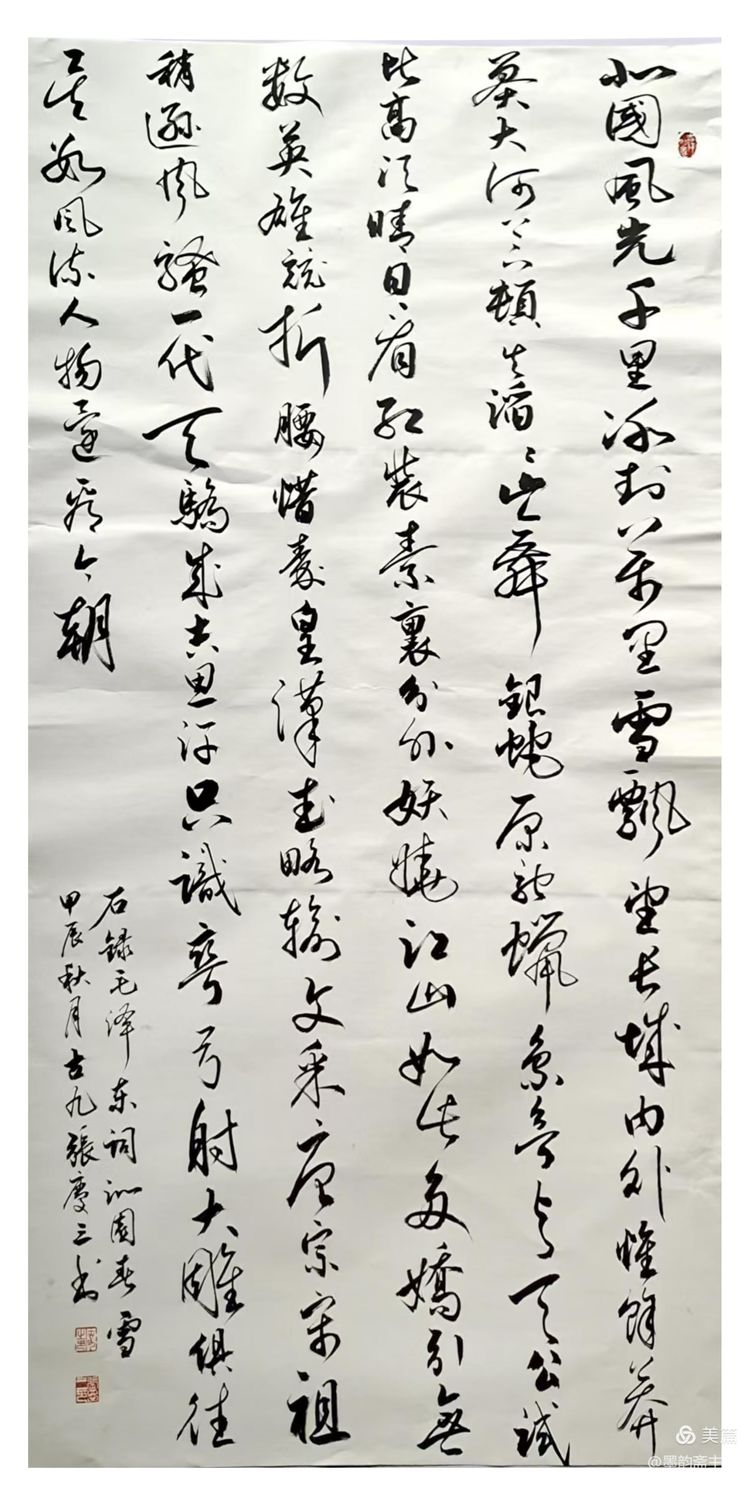 北國風光千里冰封萬里雪飄望長城内外惟餘莽
莽大河上下頓失滔〻山舞銀蛇原馳蠟象欲與天公試
比高須晴日看紅裝素裹分外妖嬈江山如此多嬌引無
数英雄競折腰惜秦皇漢武略输文采唐宗宋祖
稍遜風騷一代天驕成吉思汗只識彎弓射大雕俱往
矣数風流人物還看今朝
右録毛泽东词沁園春雪
甲辰秋月古九張慶三书
美篇
@墨韵斋主